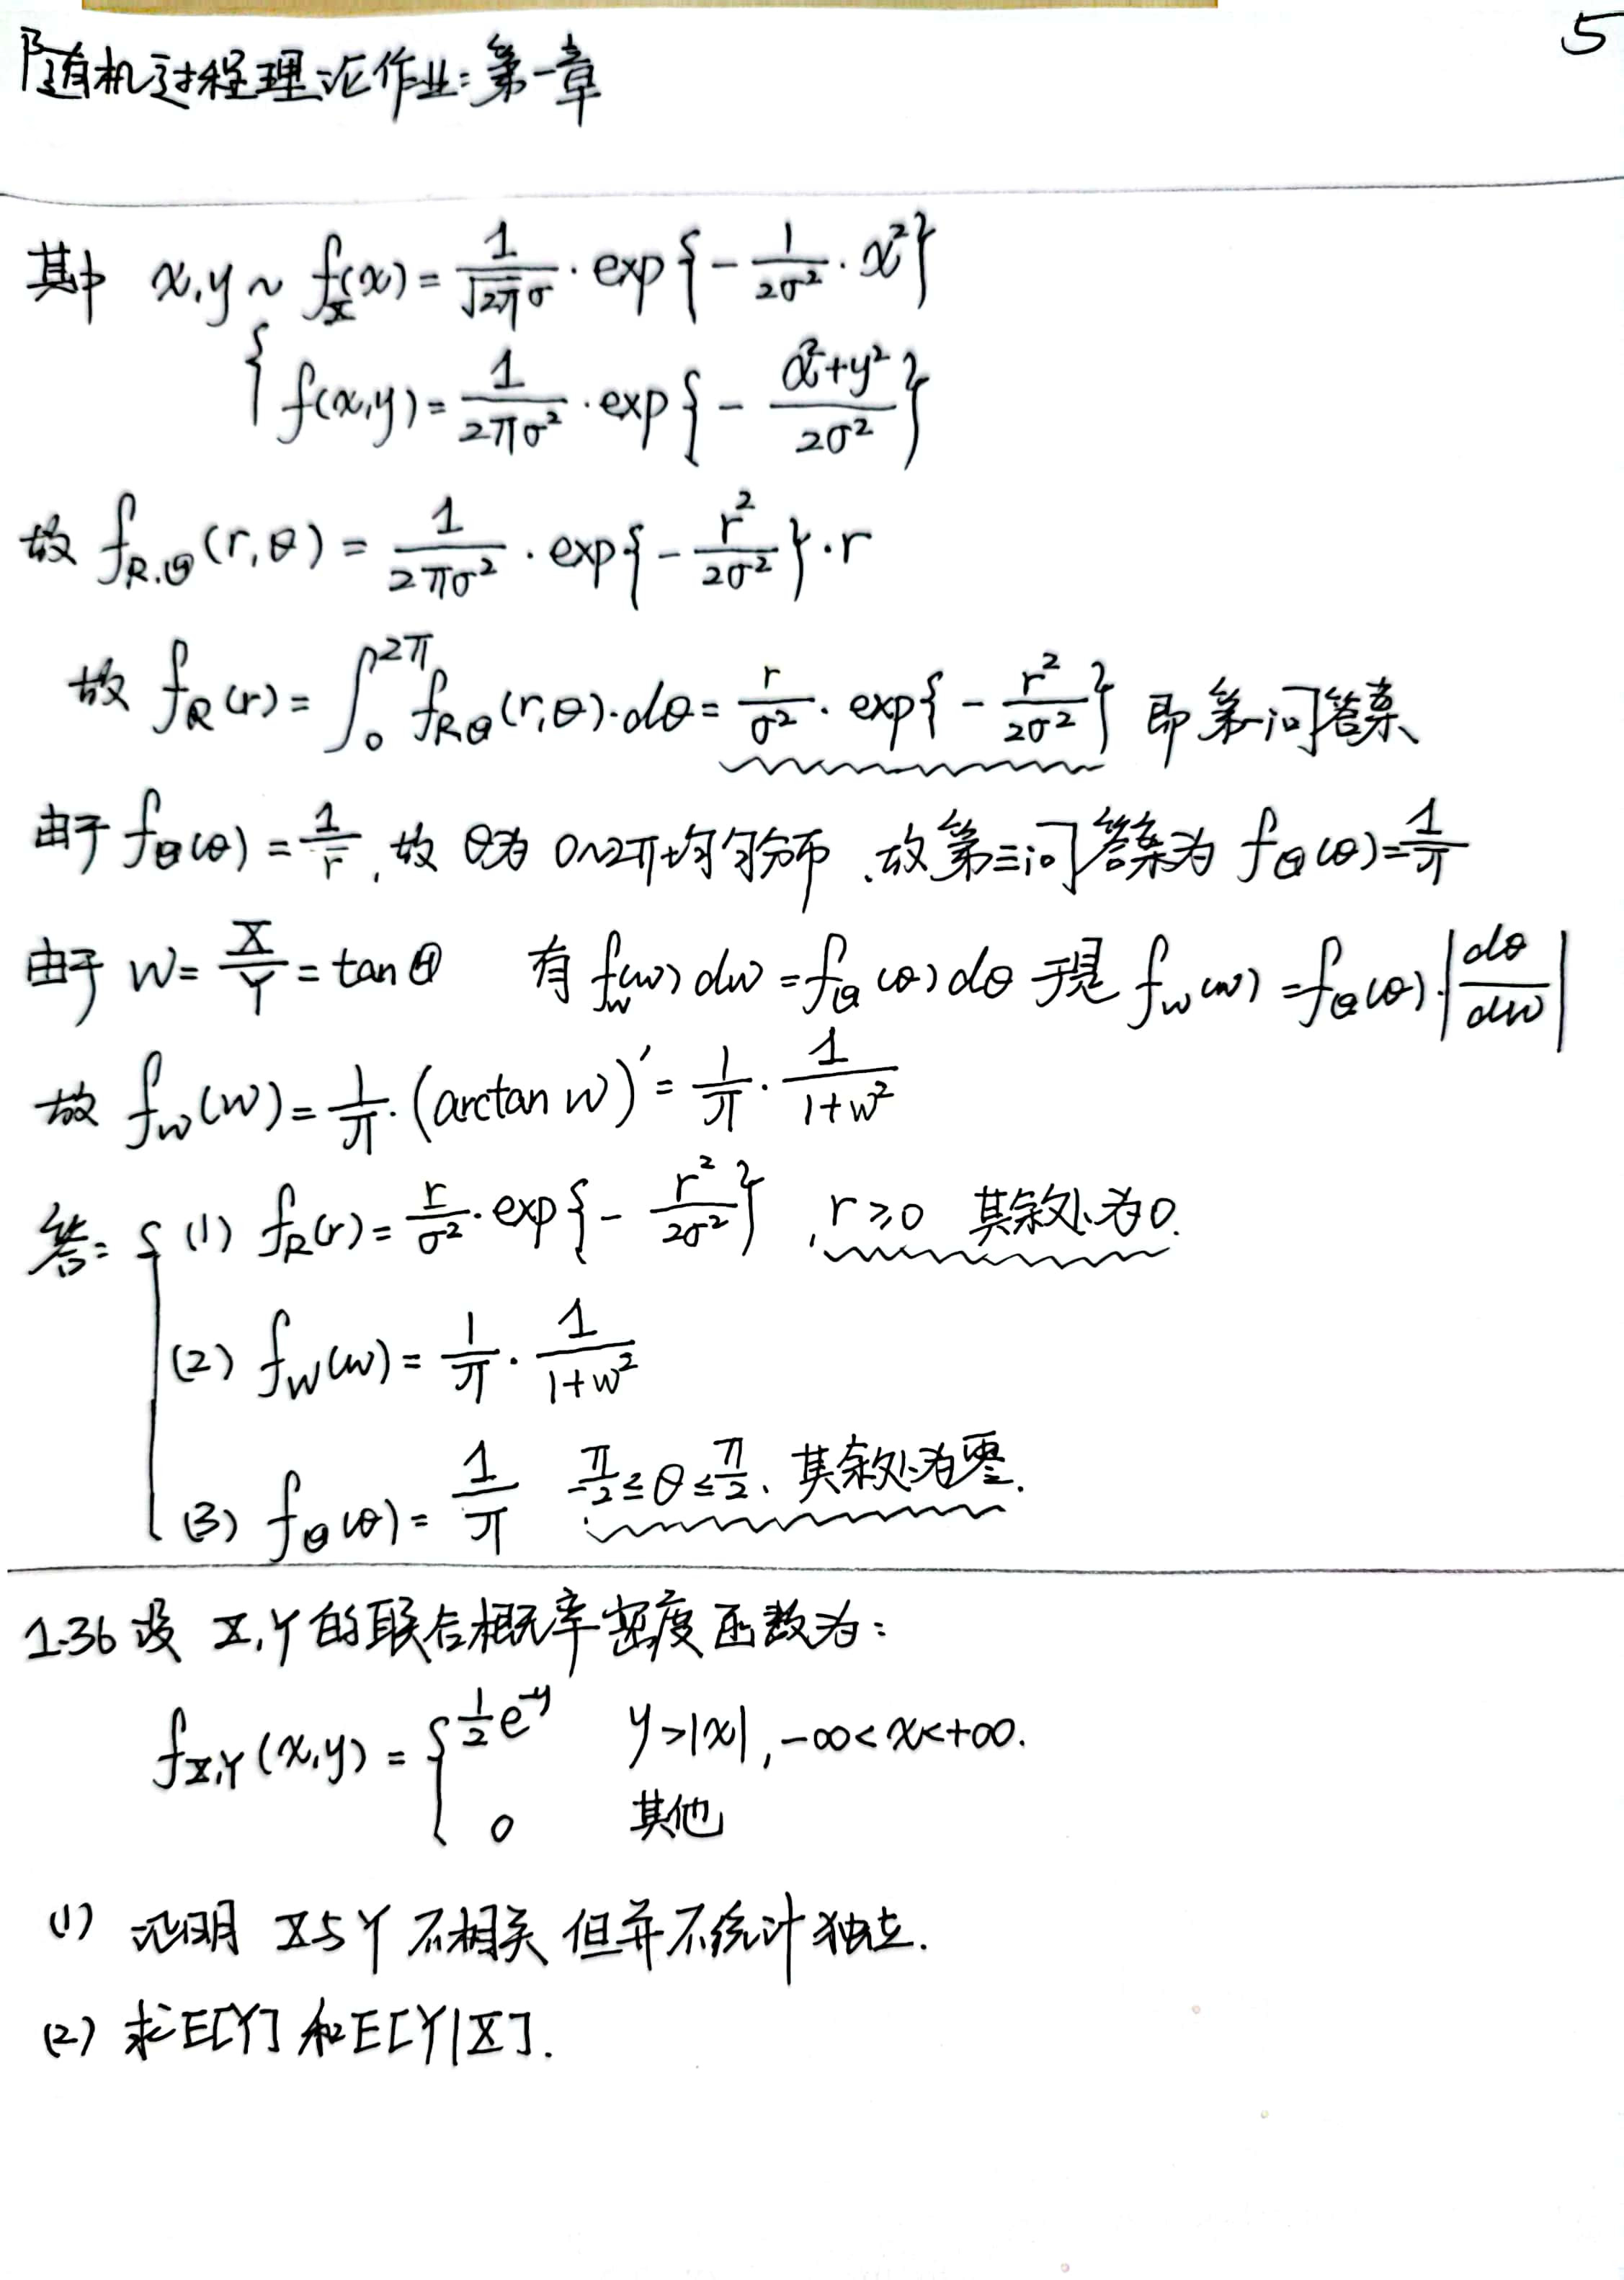 5
随机过程理论作业:第一章
其中 x,y ~ f_X(x) = 1/(√(2π)σ) · exp{ - 1/(2σ²) · x² }
{ f(x,y) = 1/(2πσ²) · exp{ - (x²+y²)/(2σ²) }
故 f_{R,Θ}(r,θ) = 1/(2πσ²) · exp{ - r²/(2σ²) } · r
故 f_R(r) = ∫_0^{2π} f_{RΘ}(r,θ)·dθ = r/σ² · exp{ - r²/(2σ²) } 即第一问答案
由于 f_Θ(θ) = 1/r, 故 θ为 0~2π均匀分布 .故第三问答案为 f_Θ(θ) = 1/π
由于 W = X/Y = tanΘ 有 f_W(w) dw = f_Θ(θ) dθ 于是 f_W(w) = f_Θ(θ)·|dθ/dw|
故 f_W(w) = 1/π · (arctan w)′ = 1/π · 1/(1+w²)
答: { (1) f_R(r) = r/σ² · exp{ - r²/(2σ²) } , r≥0 其余处为0.
(2) f_W(w) = 1/π · 1/(1+w²)
(3) f_Θ(θ) = 1/π -π/2 ≤ θ ≤ π/2、其余处为零.
1.36 设 X,Y的联合概率密度函数为:
f_{X,Y}(x,y) = { 1/2 e^{-y} y>|x|, -∞<x<+∞.
0 其他
(1) 证明 X与Y 不相关 但并不统计独立.
(2) 求E[Y] 和E[Y|X].